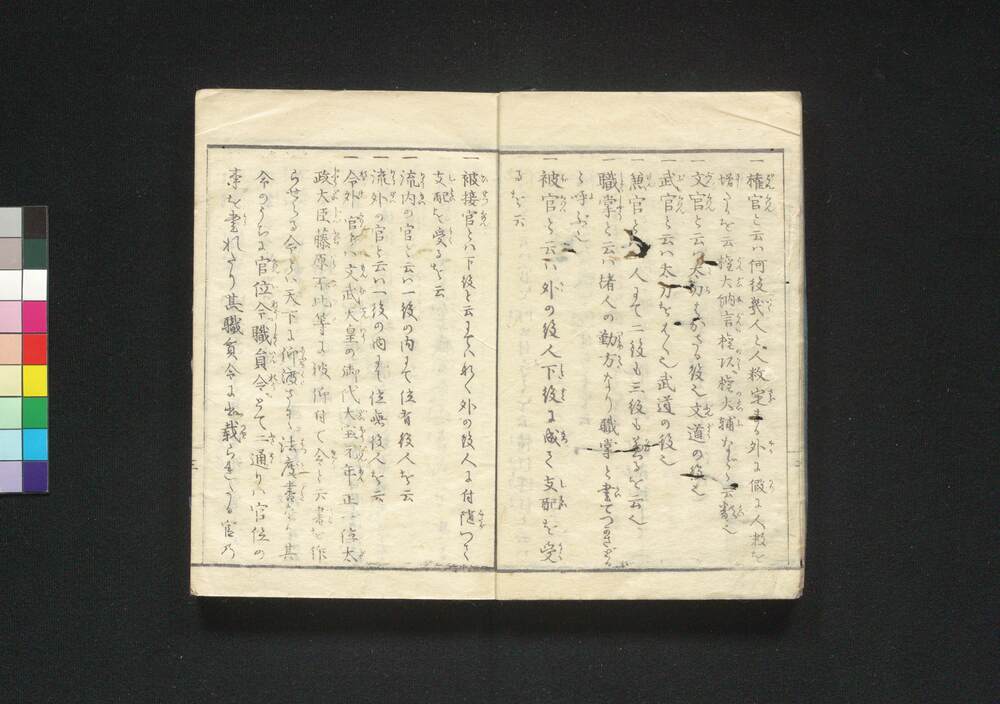 一権官と云ハ何役幾人と人数定まる外に假に人数を
増すを云権大納言権頭権大輔などと云類也
一文官と云ハ太刀をはかざる役也文道の役也
一武官と云ハ太刀をはく武道の役也
一兼官とハ一人にて二役も三役も兼るを云也
一職掌と云ハ諸人の勤方なり職掌と書てつかさどる
と呼ぶ也
一被官と云ハ外の役人下役に成て支配を受
るを云
一被接官とハ下役と云にてハなく外の役人に付随つて
支配を受るを云
一流内の官と云ハ一役の内にて位有役人を云
一流外の官と云ハ一役の内にて位無役人を云
一令外官とハ文武天皇の御代大宝元年正一位太
政大臣藤原不比等に被仰付て令と云書を作
らせらる令とハ天下に仰渡さるゝ法度書也其
令のうちに官位令職員令とて二通りハ官位の
事を書れたり其職員令に出載られたる官乃